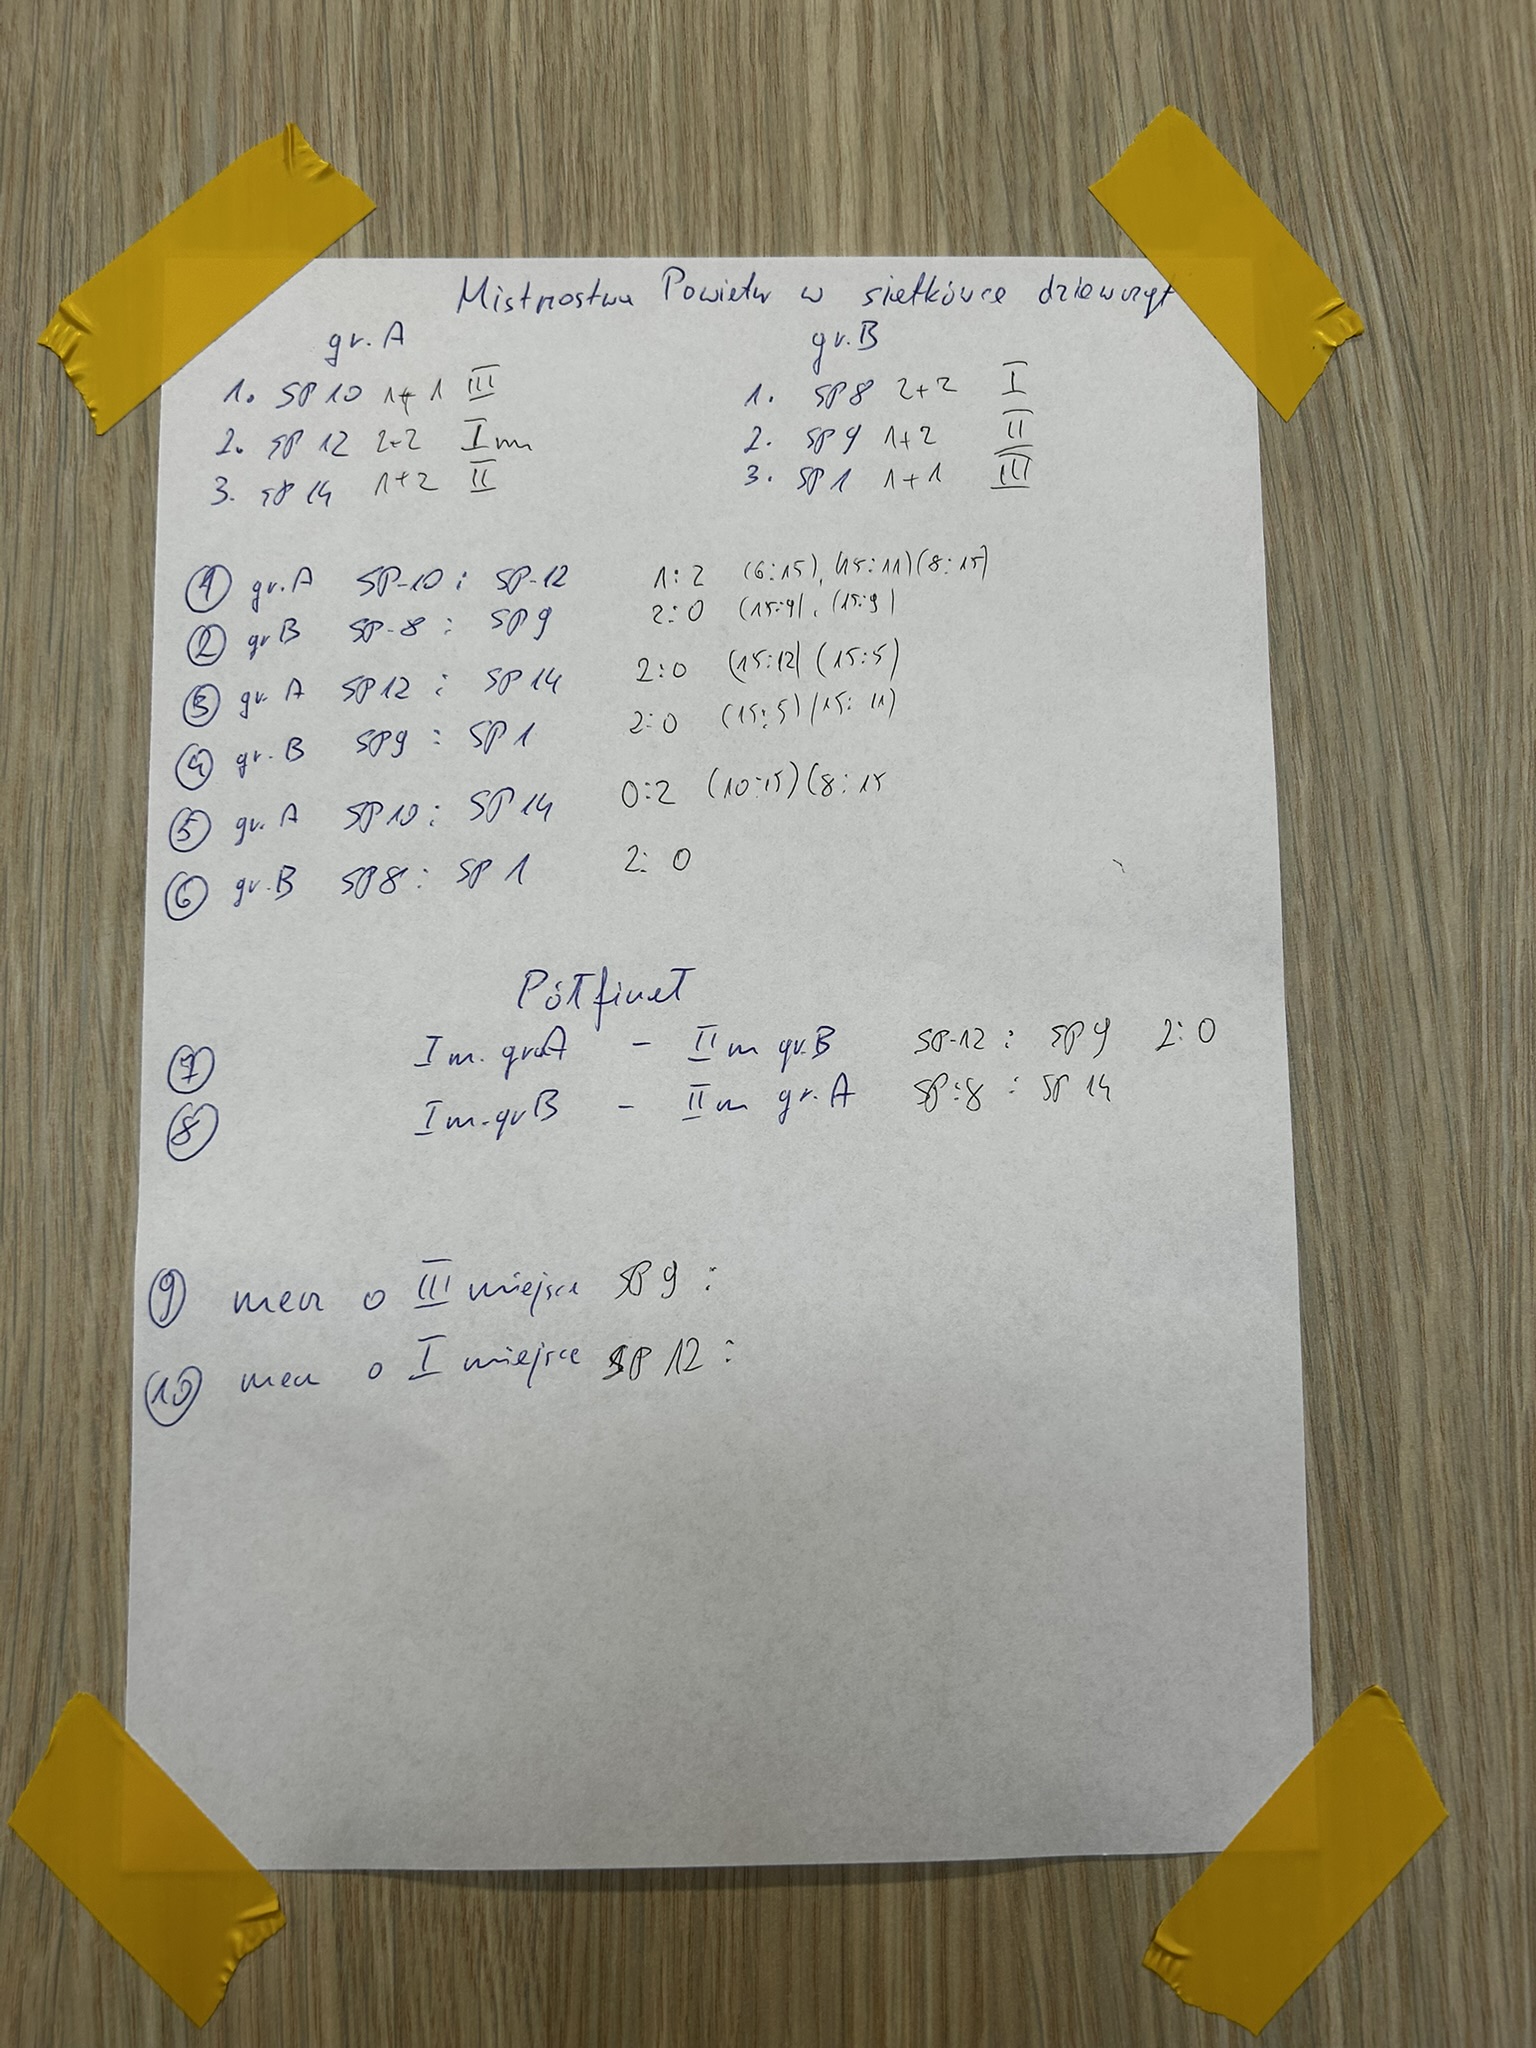 Mistrzostwa Powiatu w siatkówce dziewcząt
gr. A gr. B
1. SP 10 1+1 III 1. SP 8 2+2 I
2. SP 12 2+2 I m 2. SP 9 1+2 II
3. SP 14 1+2 II 3. SP 1 1+1 III
1 gr. A SP-10 : SP-12 1:2 (6:15), (15:11) (8:15)
2 gr B SP-8 : SP 9 2:0 (15:9), (15:9)
3 gr. A SP 12 : SP 14 2:0 (15:12) (15:5)
4 gr. B SP 9 : SP 1 2:0 (15:5) (15:11)
5 gr. A SP 10 : SP 14 0:2 (10:15) (8:15
6 gr. B SP 8 : SP 1 2:0
Półfinał
7 I m. gr. A - II m gr. B SP-12 : SP 9 2:0
8 I m. gr B - II m gr. A SP:8 : SP 14
9 mecz o III miejsce SP 9 :
10 mecz o I miejsce SP 12 :